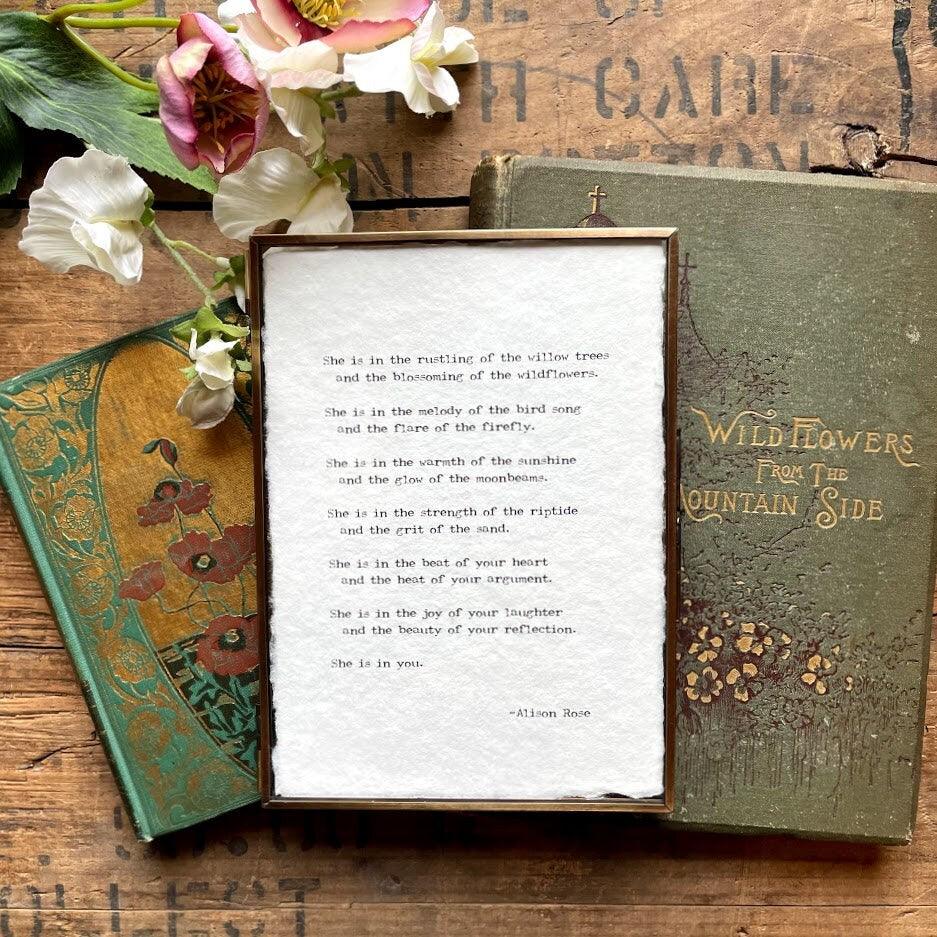 CARE
She is in the rustling of the willow trees
and the blossoming of the wildflowers.
She is in the melody of the bird song
and the flare of the firefly.
She is in the warmth of the sunshine
and the glow of the moonbeams.
She is in the strength of the riptide
and the grit of the sand.
She is in the beat of your heart
and the heat of your argument.
She is in the joy of your laughter
and the beauty of your reflection.
She is in you.
-Alison Rose
WILD FLOWERS
FROM THE
MOUNTAIN SIDE